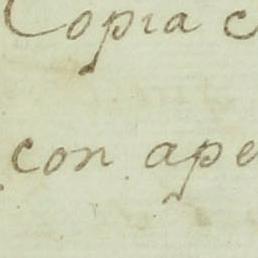 Copia c
con ape